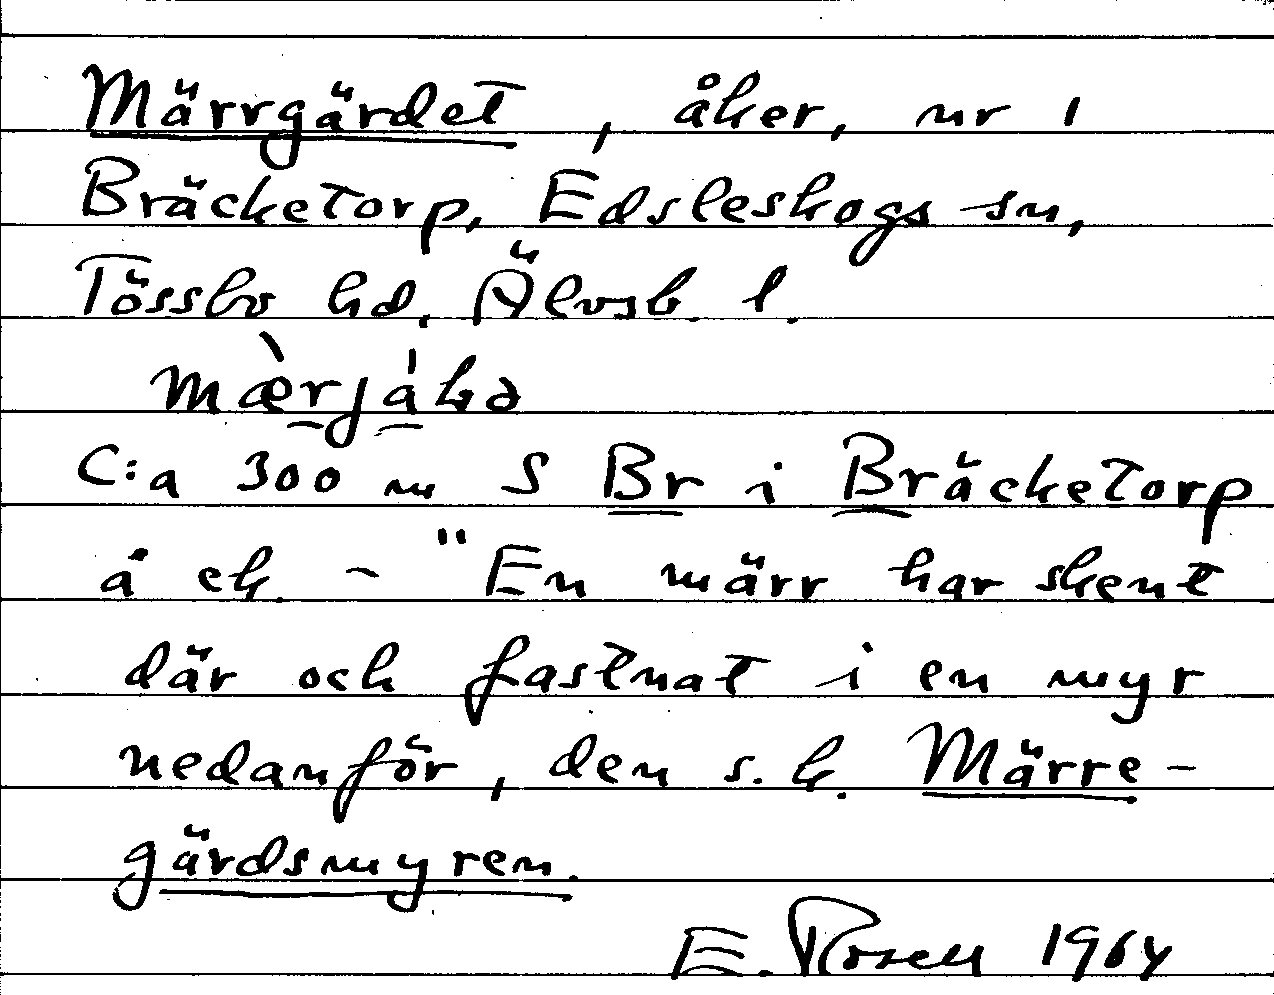 Märrgärdet, åker, nr 1
Bräcketorp, Edsleskogs sn,
Tössbo hd. Älvsb. l.
C:a 300 m S Br i Bräcketorp
å ek. - "En märr har skent
där och fastnat i en myr
nedanför, den s.k. Märre-
gärdsmyren.
E. Rosell 1964